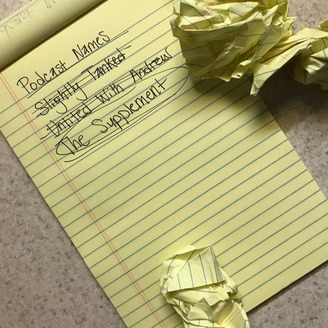 Podcast Names
Slightly Tanked
Untitled With Andrew
The Supplement